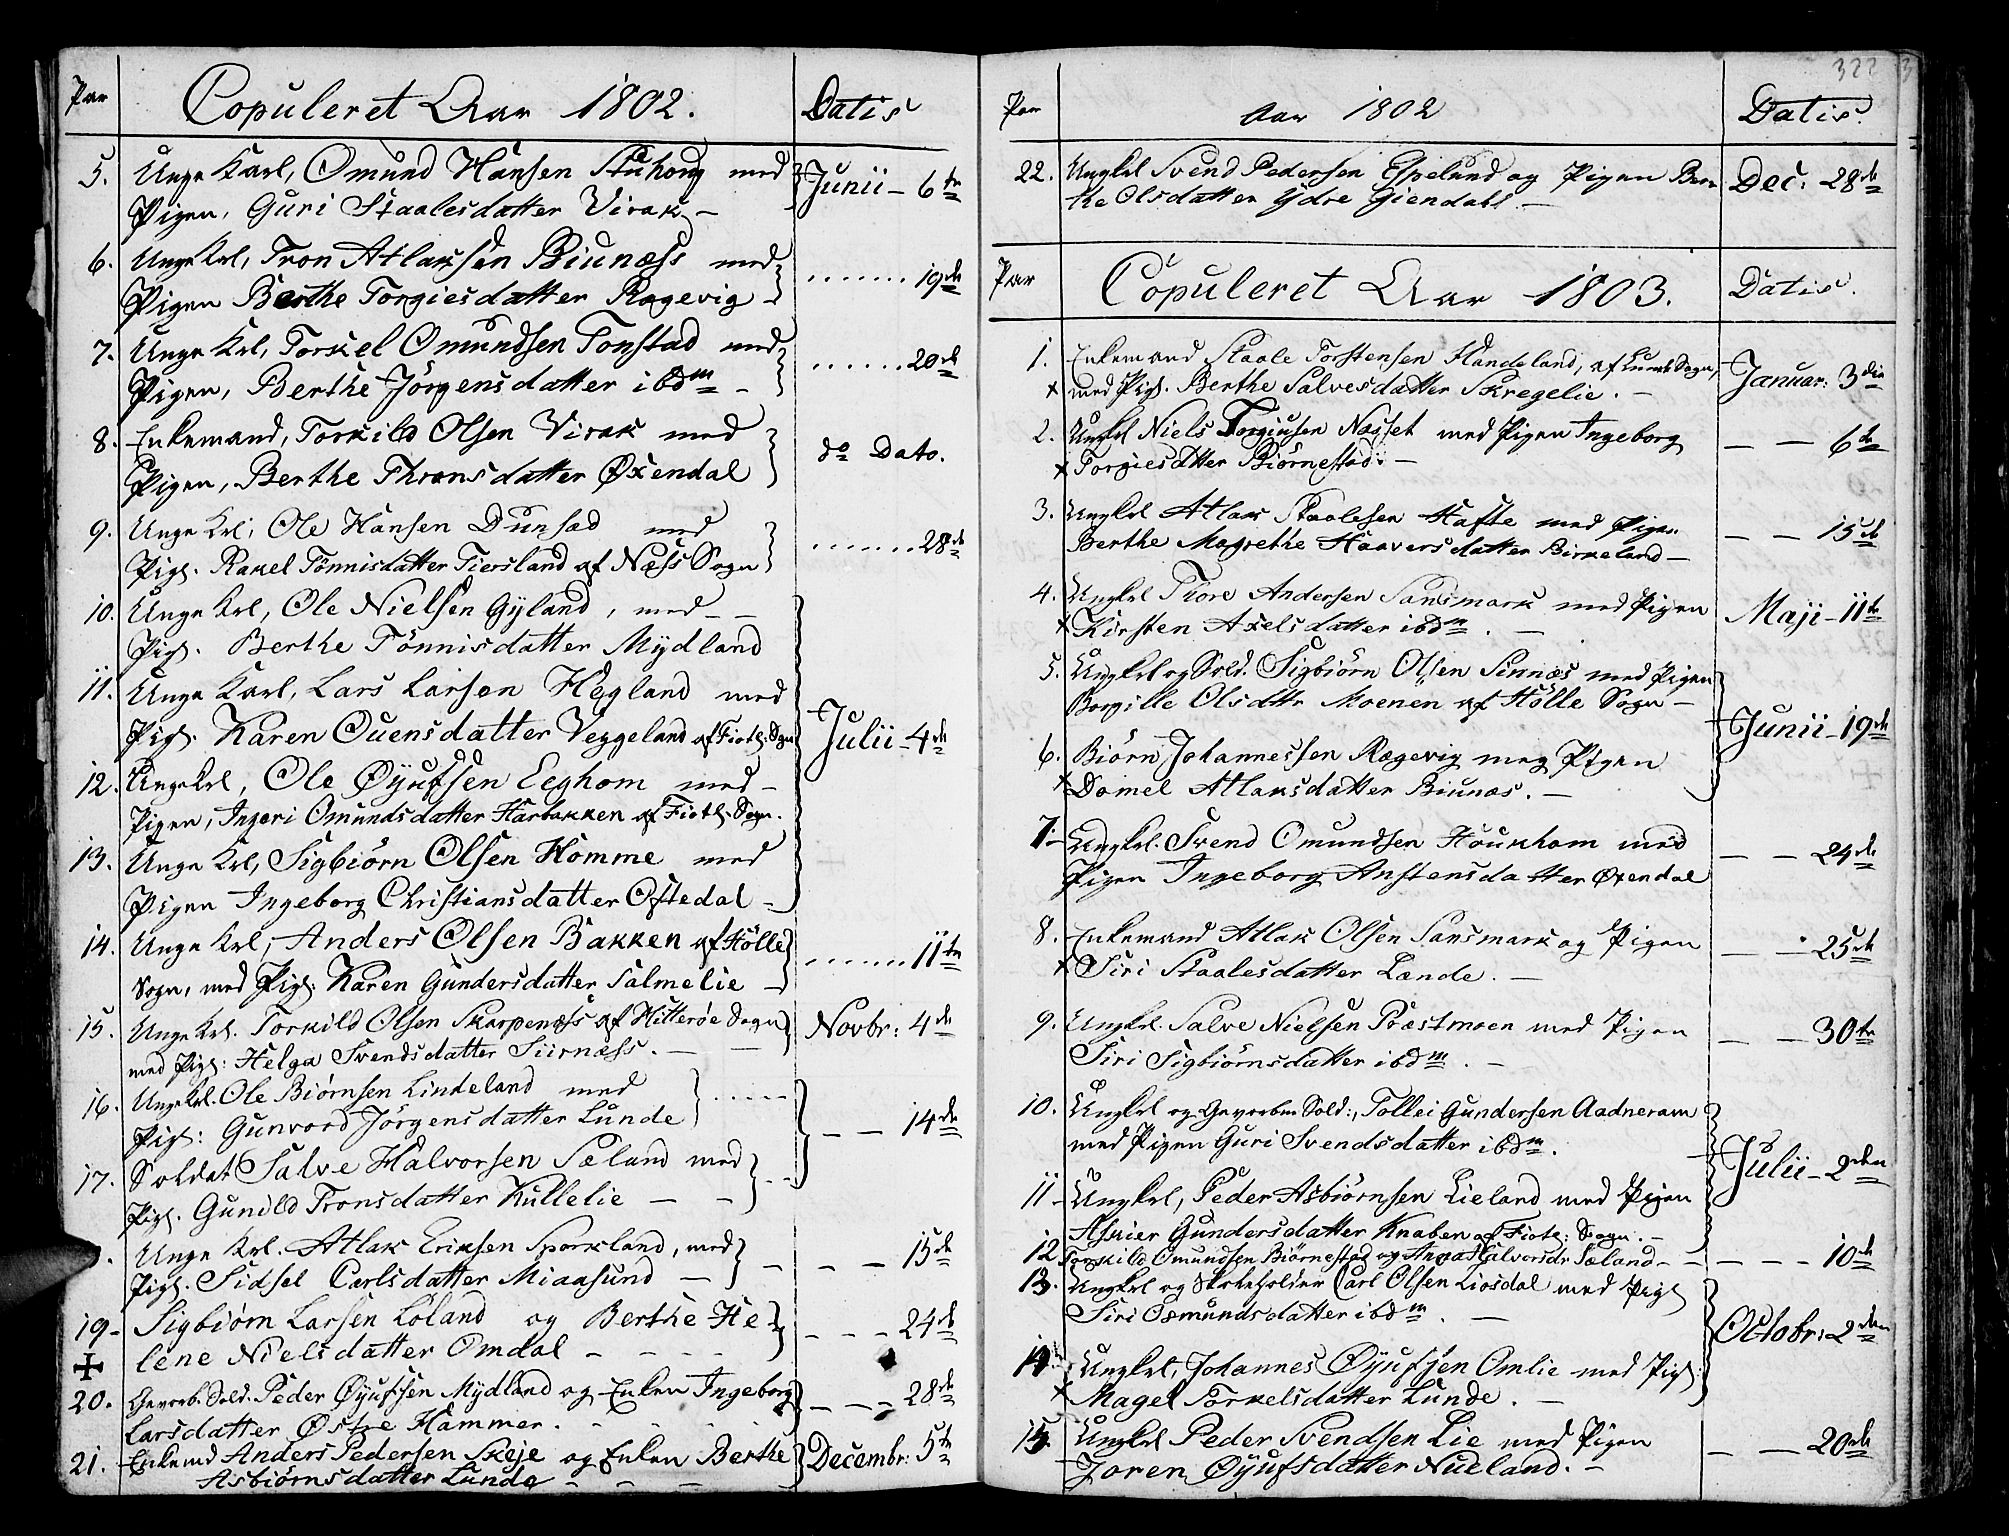 Par Copuleret Aar 1802. Datis
5. Unge Karl, Omund Hansen Stuhoug med Junii - 6te
Pigen, Guri Staalesdatter Virak -
6. Unge Krl, Tron Atlaksen Biunæss med
Pigen Berthe Torgiesdatter Rægevig - ....... 19de
7. Unge Krl, Torkel Omundsen Tonstad med
Pigen, Berthe Jörgensdatter ibdm - ....... 20de
8. Enkemand, Torkild Olsen Virak med
Pigen, Berthe Thronsdatter Øxendal do Dato.
9. Unge Krl, Ole Hansen Dunsæd med
Pig. Rakel Tönnisdatter Tiersland af Næss Sogn ....... 28de
10. Unge Krl, Ole Nielsen Gyland, med - -
Pig. Berthe Tönnisdatter Mydland
11. Unge Karl, Lars Larsen Hegland med
Pig. Karen Ouensdatter Veggeland af Fiotl: Sogn Julii - 4de
12. Unge Krl, Ole Øyufsen Eeghom med -
Pigen, Ingeri Omundsdatter Harbakken af Fiotl: Sogn.
13. Unge Krl, Sigbiørn Olsen Homme med
Pigen Ingeborg Christiansdatter Oftedal -
14. Unge Krl, Anders Olsen Bakken af Hölle
Sogn, med Pig: Karen Gundersdatter Salmelie - ....... 11te
15. Unge Krl. Torkild Olsen Skarpenæss af Hitterøe Sogn Novbr: 4de
med Pig: Helga Svendsdatter Siirnæss. - -
16. Unge Krl. Ole Biørnsen Linkeland med .....
Pig: Gunvord Jörgensdatter Lunde - - 14de
17. Soldat Salve Halvorsen Sæland med - -
Pig. Gunild Tronsdatter Kullelie - -
Unge Krl. Atlak Eriksen Sporkland, med - - - 15de
Pig. Sidsel Carlsdatter Miaasund -
19 - Sigbiørn Larsen Løland og Berthe He - - - 24de
lene Nielsdatter Omdal - - - -
20. Gevorb: Sold: Peder Øyufsen Mydland og Enken Ingeborg - - - 28de
Larsdatter Østre Hammer. - - - -
21. Enkemd Anders Pedersen Skeje og Enken Berthe Decembr: 5te
Asbiörnsdatter Lunde - - - -
322
Par Aar 1802 Datis.
22. Ungkrl Svend Pedersen Espelund og Pigen Ber- Dec: 28de
the Olsdatter Ydre Giendahl. -
Par Copuleret Aar 1803. Datis.
1. Enkemand Staale Torstensen Handeland, af Lunds Sogn, Januar: 3die
x med Pig. Berthe Salvesdatter Skregelie. -
2. Ungkrl Niels Torgiusen Næsset med Pigen Ingeborg - - 6te
x Torgiesdatter Biörnestad: -
3. Ungkrl Atlak Staalesen Hafte med Pigen - - 15de
Berthe Magrethe Haaversdatter Birkeland -
4. Ungkrl Thore Andersen Sandsmark med Pigen Maji - 11te
x Kirsten Axelsdatter ibdm. -
5. Ungkrl og Sold. Sigbiörn Olsen Sinnæs med Pigen
Borgille Olsdttr Moenen af Hölle Sogn - Junii - 19de
6. Biörn Johannessen Rægevig meg Pigen
x Domel Atlaksdatter Biunæs. -
7. Ungkrl. Svend Omundsen Houkhom med - - 24de
Pigen Ingeborg Anstensdatter Øxendal
8. Enkemand Atlak Olsen Sansmark og Pigen - - 25de
x Siri Staalesdatter Lænde. -
9. Ungkrl. Salve Nielsen Præstmoen med Pigen - - 30te
Siri Sigbiörnsdatter ibdm. -
10. Ungkrl og Gevorben Sold:, Tollei Gundersen Aadneram
med Pigen Guri Svendsdatter ibdm. Julii - 2den
11 - Ungkrl, Peder Asbiörnsen Lieland med Pigen
Askier Gundersdatter Knaben af Fiotl: Sogn. -
12 Torkild Omundsen Biörnestad og Anna Halvorsdr Sæland - - - - 10de
13. Ungkrl og Skoleholder Carl Olsen Liosdal med Pig
Siri Osmundsdatter ibdm. - Octobr: 2den
14 Ungkrl, Johannes Øyufsen Omlie med Pig.
x Magel Torkelsdatter Lunde. -
15. Ungkrl Peder Svendsen Lie med Pigen - - 20de
Joren Øyufsdatter Nueland. -